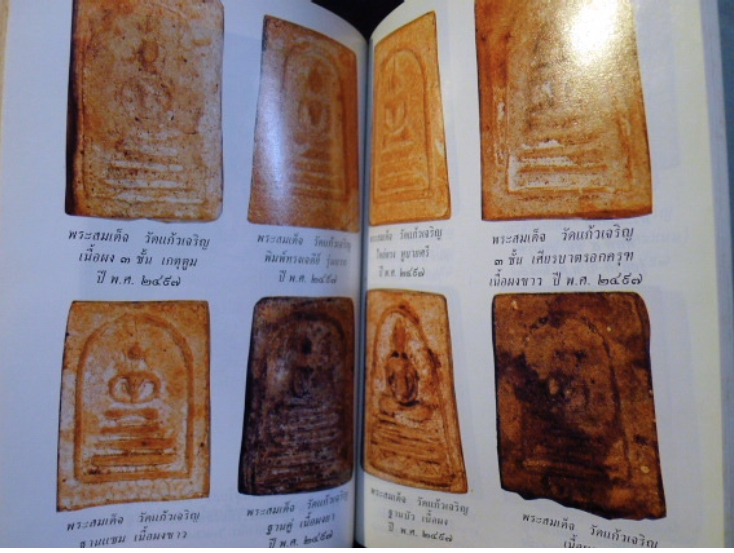 พระสมเด็จ วัดแก้วเจริญ
เนื้อผง ๓ ชั้น เกตุตูม
ปี พ.ศ. ๒๔๙๗
พระสมเด็จ วัดแก้วเจริญ
พิมพ์ทรงเจดีย์
ปี พ.ศ. ๒๔๙๗
พระสมเด็จ วัดแก้วเจริญ
ปี พ.ศ. ๒๔๙๗
พระสมเด็จ วัดแก้วเจริญ
๓ ชั้น เศียรบาตรอกครุฑ
เนื้อผงขาว ปี พ.ศ. ๒๔๙๗
พระสมเด็จ วัดแก้วเจริญ
ฐานแซม เนื้อผงขาว
พระสมเด็จ วัดแก้วเจริญ
ฐานคู่ เนื้อผงยา
ปี พ.ศ. ๒๔๙๗
พระสมเด็จ วัดแก้วเจริญ
ฐานบัว เนื้อผง
ปี พ.ศ. ๒๔๙๗
พระสมเด็จ วัดแก้วเจริญ